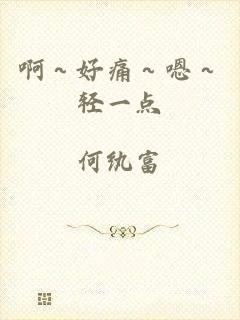 啊～好痛～嗯～
轻一点
何纨富